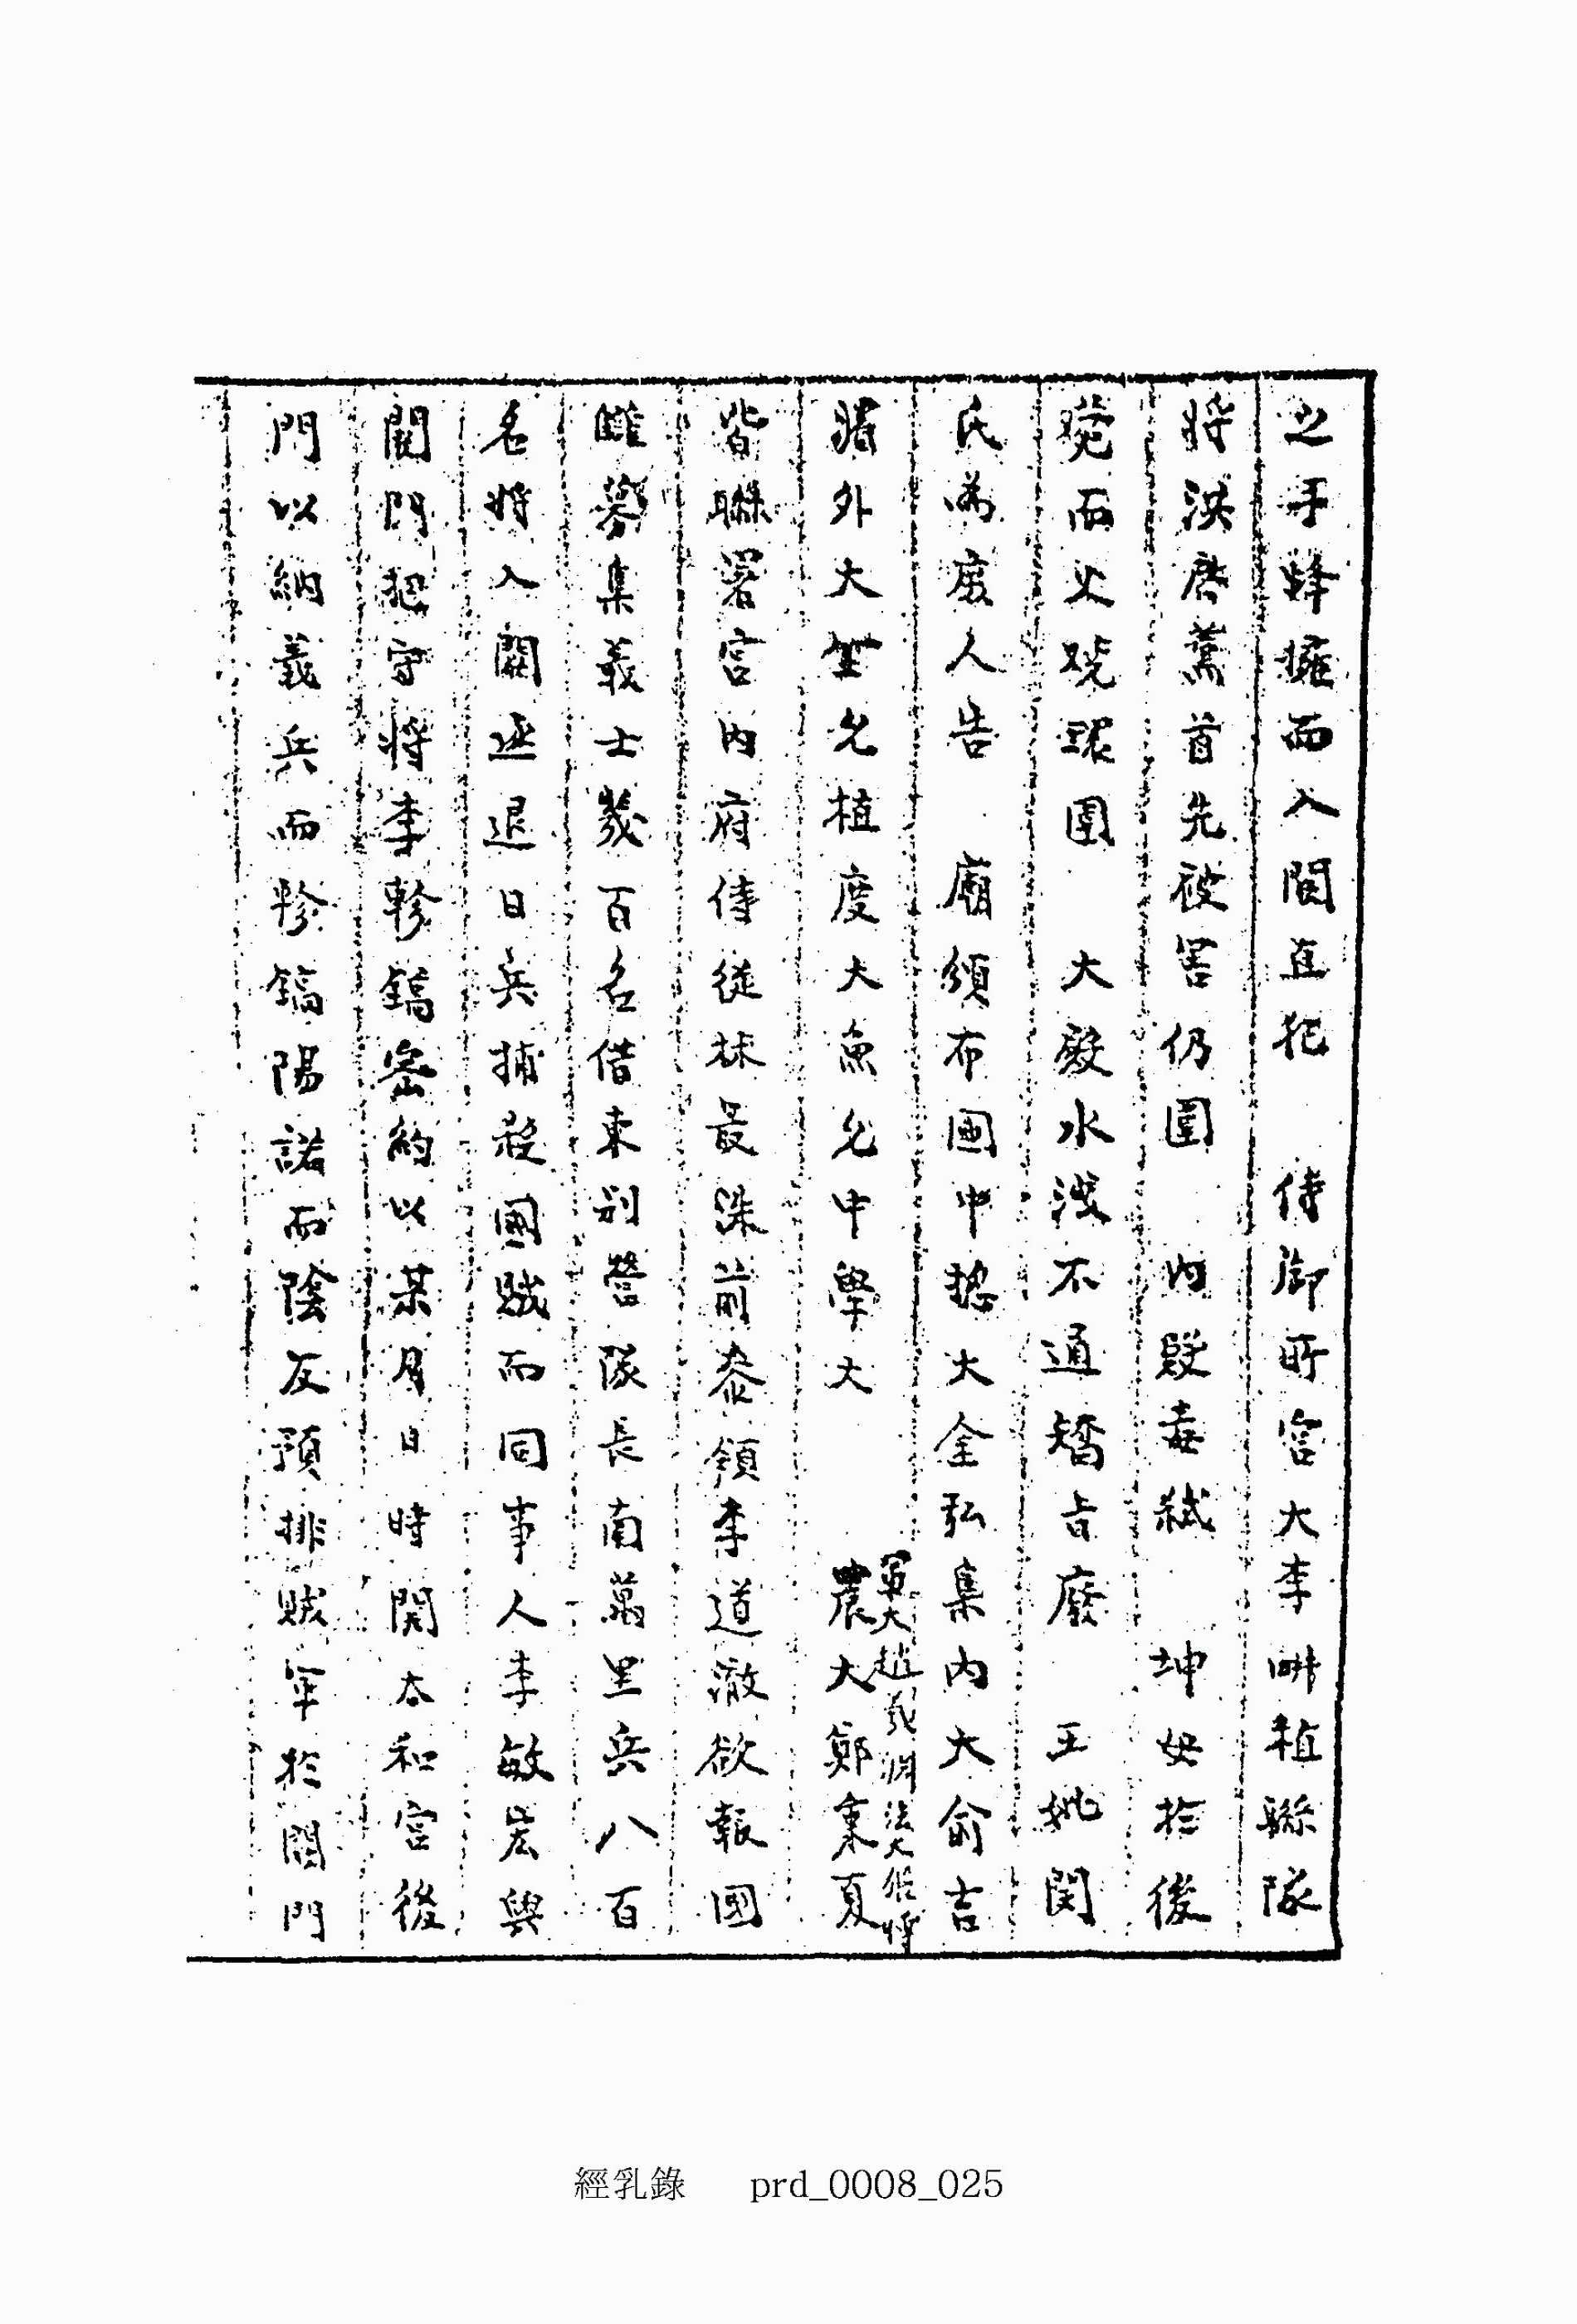 之手蜂擁而入闔直犯　侍御所宮大李畊稙聯隊
將洪啓薰首先被害仍圍　內殿毒弑　坤妃於後
莞而火燒環圍　大殿水洩不通矯旨廢　王妣閔
氏為庶人告　廟頒布國中摠大金弘集內大兪吉
濬外大金允植度大魚允中學大
軍大趙羲淵法大張將
農大鄭秉夏
皆聯署宮內府侍從林最洙前叅領李道澈欲報國
讎募集義士幾百名借東別營隊長南萬里兵八百
名將入闕逐退日兵捕殺國賊而同事人李敏宏與
闕門把守將李軫鎬密約以某月日時開太和宮後
門以納義兵而軫鎬陽諾而陰反預排賊軍於闕門
經乳錄　prd_0008_025